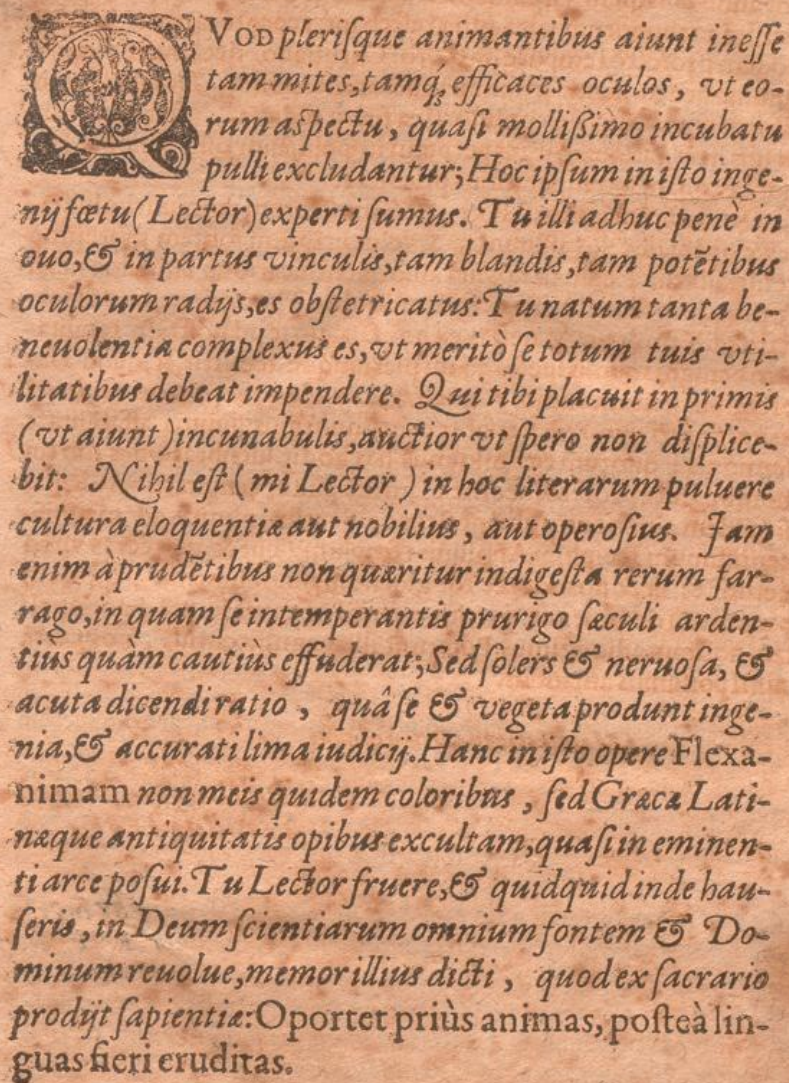 QVOD plerisque animantibus aiunt inesse
tam mites, tamq́; efficaces oculos, vt eo-
rum aspectu, quasi mollißimo incubatu
pulli excludantur; Hoc ipsum in isto inge-
nij fœtu (Lector) experti sumus. Tu illi adhuc penè in
ouo, & in partus vinculis, tam blandis, tam potẽtibus
oculorum radijs, es obstetricatus: Tu natum tanta be-
neuolentia complexus es, vt meritò se totum tuis vti-
litatibus debeat impendere. Qui tibi placuit in primis
(vt aiunt) incunabulis, auctior vt spero non displice-
bit: Nihil est (mi Lector) in hoc literarum puluere
cultura eloquentiæ aut nobilius, aut operosius. Iam
enim à prudẽtibus non quæritur indigesta rerum far-
rago, in quam se intemperantis prurigo sæculi arden-
tiùs quàm cautiùs effuderat; Sed solers & neruosa, &
acuta dicendi ratio, quâ se & vegeta produnt inge-
nia, & accurati lima iudicij. Hanc in isto opere Flexa-
nimam non meis quidem coloribus, sed Græcæ Lati-
næque antiquitatis opibus excultam, quasi in eminen-
ti arce posui. Tu Lector fruere, & quidquid inde hau-
seris, in Deum scientiarum omnium fontem & Do-
minum reuolue, memor illius dicti, quod ex sacrario
prodijt sapientiæ: Oportet priùs animas, posteà lin-
guas fieri eruditas.